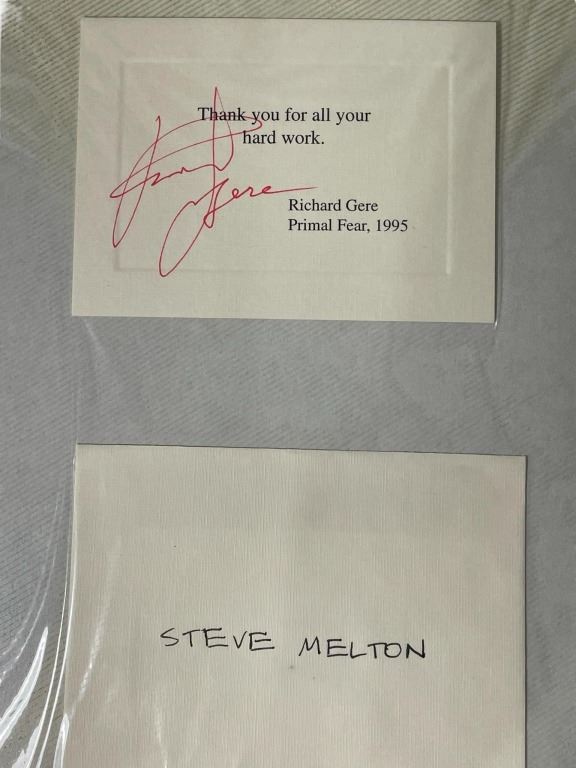 Thank you for all your
hard work.
Gere
Richard Gere
Primal Fear, 1995
STEVE MELTON